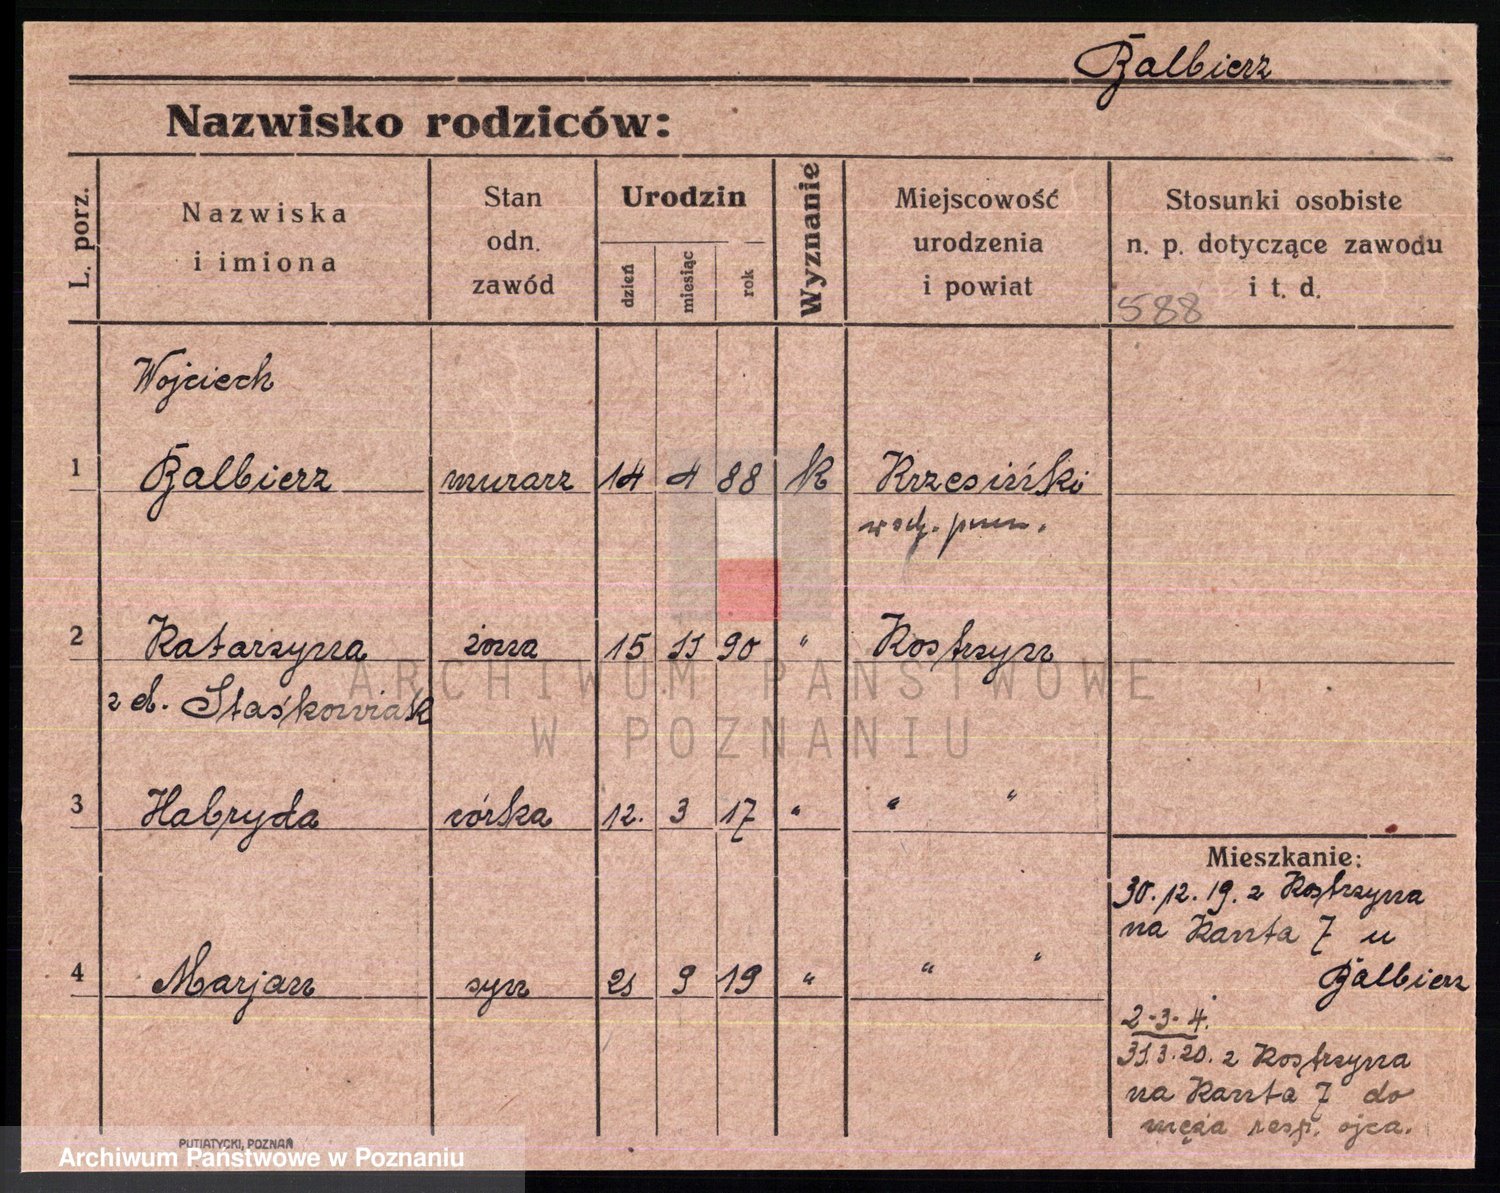 Balbierz
Nazwisko rodziców:
L. porz.
Nazwiska
i imiona
Stan
odn.
zawód
Urodzin
dzień
miesiąc
rok
Wyznanie
Miejscowość
urodzenia
i powiat
Stosunki osobiste
n. p. dotyczące zawodu
i t. d.
588
Wojciech
1 Balbierz murarz 14 4 88 k Krzesińki
2 Katarzyna żona 15 11 90 " Kostrzyn
z d. Staśkowiak
3 Habryda córka 12. 3 17 " " "
4 Marjan syn 21 9 19 " " "
Mieszkanie:
30.12.19. z Kostrzyna
na Kanta 7 u
Balbierz
2-3-4.
31.3.20. z Kostrzyna
na Kanta 7 do
męża resp. ojca.
ARCHIWUM PAŃSTWOWE
W POZNANIU
PUTIATYCKI, POZNAŃ
Archiwum Państwowe w Poznaniu